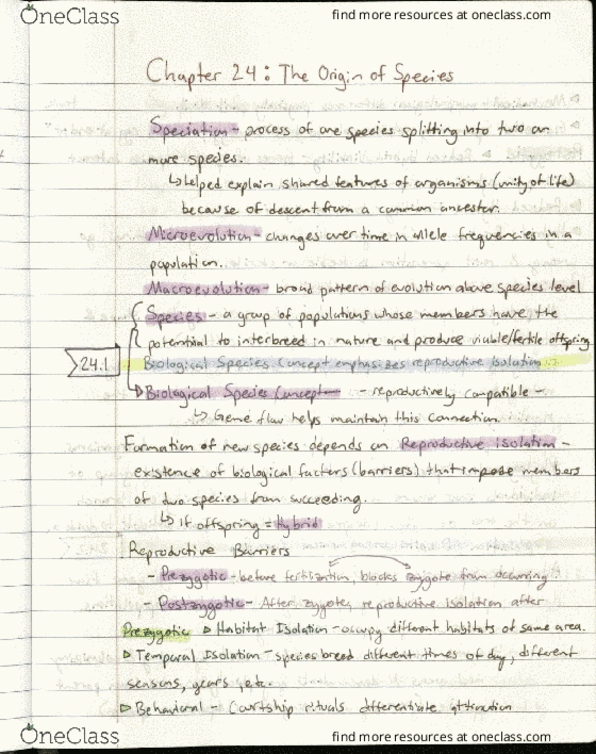 OneClass find more resources at oneclass.com
Chapter 24: The Origin of Species
Speciation - process of one species splitting into two or
more species.
↳ Helped explain shared features of organisms (unity of life)
because of descent from a common ancestor.
Microevolution - changes over time in allele frequencies in a
population.
Macroevolution - broad pattern of evolution above species level
Species - a group of populations whose members have the
potential to interbreed in nature and produce viable/fertile offspring
24.1 Biological Species Concept emphasizes reproductive isolation
Biological Species Concept - reproductively compatible -
↳ Gene flow helps maintain this connection.
Formation of new species depends on Reproductive isolation -
existence of biological factors (barriers) that impose members
of two species from succeeding.
↳ If offspring = Hybrid
Reproductive Barriers
- Prezygotic - before fertilization, blocks zygote from occurring
- Postzygotic - After zygote, reproductive isolation after
Prezygotic ▷ Habitat Isolation - occupy different habitats of same area.
▷ Temporal Isolation - species breed different times of day, different
seasons, years, etc.
▷ Behavioral - Courtship rituals differentiate attraction
OneClass find more resources at oneclass.com